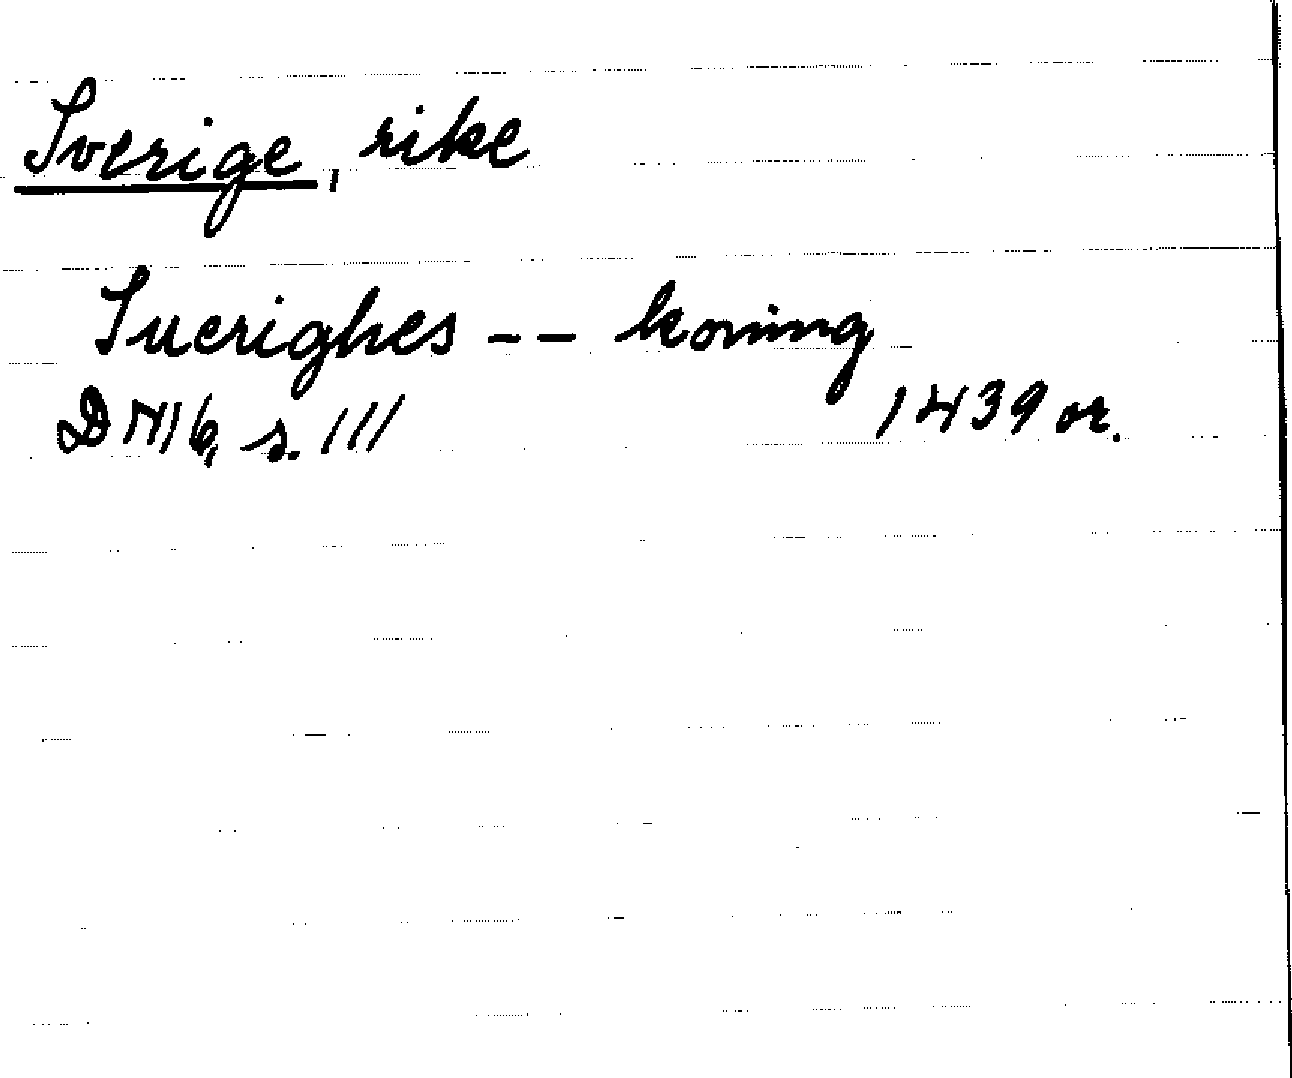 Sverige, rike
Suerighes -- koning
DN16, s. 111 1439 or.